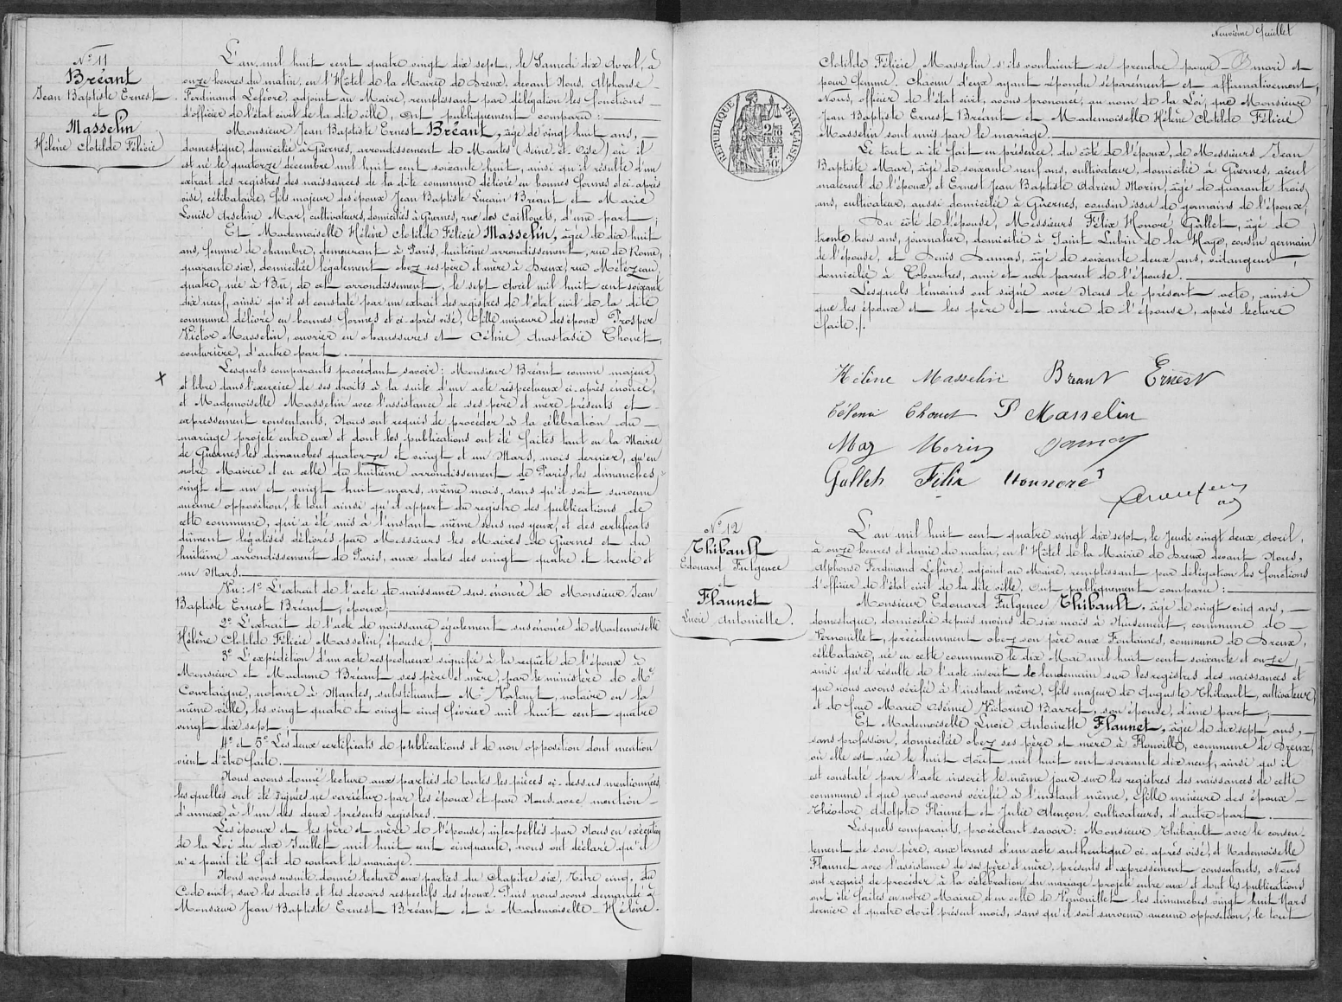 N° 11
Bréant
Jean Baptiste Ernest
et
Masselin
Hélène Clotilde Félicie
L'an mil huit cent quatre vingt dix sept, le Samedi dix Avril, à
onze heures du matin, en l'Hôtel de la Mairie de Dreux, devant Nous, Alphonse
Ferdinand Lefèvre, adjoint au Maire, remplissant par délégation les fonctions
d'officier de l'état civil de la dite ville, Ont publiquement comparu :
Monsieur Jean Baptiste Ernest Bréant, âgé de vingt huit ans,
domestique, domicilié à Guernes, arrondissement de Mantes (Seine et Oise) où il
est né le quatorze décembre mil huit cent soixante huit, ainsi qu'il résulte d'un
extrait des registres des naissances de la dite commune délivré en bonnes formes et ci-après
visé, célibataire, fils majeur des époux Jean Baptiste Lucain Bréant et Marie
Louise Arseline Maz, cultivateurs, domiciliés à Guernes, rue des Caillouets, d'une part ;
Et Mademoiselle Hélène Clotilde Félicie Masselin, âgée de dix huit
ans, femme de chambre, demeurant à Paris, huitième arrondissement, rue de Rome,
quarante six, domiciliée légalement chez ses père et mère à Dreux, rue Métézeau,
quatre, née à Bû, de cet arrondissement, le sept Avril mil huit cent soixante
dix neuf, ainsi qu'il est constaté par un extrait des registres de l'état civil de la dite
commune délivré en bonnes formes et ci-après visé, fille mineure des époux Prosper
Victor Masselin, ouvrier en chaussures et Céline Anastasie Chouet,
couturière, d'autre part.
Lesquels comparants procédant savoir : Monsieur Bréant comme majeur
et libre dans l'exercice de ses droits à la suite d'un acte respectueux ci-après énoncé,
et Mademoiselle Masselin avec l'assistance de ses père et mère présents et
expressément consentants, Nous ont requis de procéder à la célébration du
mariage projeté entre eux et dont les publications ont été faites tant en la Mairie
de Guernes les dimanches quatorze et vingt et un Mars, mois dernier, qu'en
notre Mairie et en celle du huitième arrondissement de Paris, les dimanches
vingt et un et vingt huit mars, même mois, sans qu'il soit survenu
aucune opposition, le tout ainsi qu'il appert du registre des publications de
cette commune, qui a été mis à l'instant même sous nos yeux, et des certificats
dûment légalisés délivrés par Messieurs les Maires de Guernes et du
huitième arrondissement de Paris, aux dates des vingt quatre et trente et
un Mars.
Vu : 1° L'extrait de l'acte de naissance sus énoncé de Monsieur Jean
Baptiste Ernest Bréant, époux ;
2° L'extrait de l'acte de naissance également susénoncé de Mademoiselle
Hélène Clotilde Félicie Masselin, épouse ;
3° L'expédition d'un acte respectueux signifié à la requête de l'époux à
Monsieur et Madame Bréant ses père et mère, par le ministère de Me
notaire à Mantes, substituant Me notaire en la
même ville, les vingt quatre et vingt cinq février mil huit cent quatre
vingt dix sept.
4° et 5° Les deux certificats de publications et de non opposition dont mention
vient d'être faite.
Nous avons donné lecture aux parties de toutes les pièces ci-dessus mentionnées,
lesquelles ont été signées ne varietur par les époux et par Nous avec mention
d'annexe à l'un des deux présents registres.
Les époux et les père et mère de l'épouse, interpellés par Nous en exécution
de la Loi du dix Juillet mil huit cent cinquante, nous ont déclaré qu'il
n'a point été fait de contrat de mariage.
Nous avons ensuite donné lecture aux parties du Chapitre six, Titre cinq, du
Code civil, sur les droits et les devoirs respectifs des époux. Puis nous avons demandé à
Monsieur Jean Baptiste Ernest Bréant et à Mademoiselle Hélène
Neuvième feuillet
Clotilde Félicie Masselin s'ils voulaient se prendre pour mari et
pour femme, chacun d'eux ayant répondu séparément et affirmativement,
Nous, officier de l'état civil, avons prononcé, au nom de la Loi, que Monsieur
Jean Baptiste Ernest Bréant et Mademoiselle Hélène Clotilde Félicie
Masselin sont unis par le mariage.
RÉPUBLIQUE FRANÇAISE
Le tout a été fait en présence, du côté de l'époux, de Messieurs Jean
Baptiste Maz, âgé de soixante neuf ans, cultivateur, domicilié à Guernes, aïeul
maternel de l'époux, et Ernest Jean Baptiste Adrien Morin, âgé de quarante trois
ans, cultivateur, aussi domicilié à Guernes, cousin issu de germains de l'époux.
Du côté de l'épouse, Messieurs Félix Honoré Gallet, âgé de
trente trois ans, journalier, domicilié à Saint Lubin de la Haye, cousin germain
de l'épouse, et Louis Damas, âgé de soixante deux ans, vidangeur,
domicilié à Chartres, ami et non parent de l'épouse.
Lesquels témoins ont signé avec Nous le présent acte, ainsi
que les époux et les père et mère de l'épouse, après lecture
faite.
Hélène Masselin Breant Ernest
Célénie Chouet P Masselin
Maz Morin Damas
Gallet Félix Honnoré
N° 12
Thibault
Edouard Fulgence
et
Flaunet
Lucie Antoinette.
L'an mil huit cent quatre vingt dix sept, le Jeudi vingt deux Avril,
à onze heures et demie du matin, en l'Hôtel de la Mairie de Dreux devant Nous,
Alphonse Ferdinand Lefèvre, adjoint au Maire, remplissant par délégation les fonctions
d'officier de l'état civil de la dite ville, Ont publiquement comparu :
Monsieur Edouard Fulgence Thibault, âgé de vingt cinq ans,
domestique, domicilié depuis moins de six mois à Nuisement, commune de
Vernouillet, précédemment chez son père aux Fontaines, commune de Dreux,
célibataire, né en cette commune le dix Mai mil huit cent soixante et onze,
ainsi qu'il résulte de l'acte inscrit le lendemain sur les registres des naissances et
que nous avons vérifié à l'instant même, fils majeur de Auguste Thibault, cultivateur,
et de feue Marie Osémie Victorine Barret, son épouse, d'une part ;
Et Mademoiselle Lucie Antoinette Flaunet, âgée de dix sept ans,
sans profession, domiciliée chez ses père et mère à Flonville, commune de Dreux,
où elle est née le huit Août mil huit cent soixante dix neuf, ainsi qu'il
est constaté par l'acte inscrit le même jour sur les registres des naissances de cette
commune et que nous avons vérifié à l'instant même, fille mineure des époux
Théodore Adolphe Flaunet et Julie Alençon, cultivateurs, d'autre part.
Lesquels comparants, procédant savoir : Monsieur Thibault avec le consen-
tement de son père, aux termes d'un acte authentique ci-après visé, et Mademoiselle
Flaunet avec l'assistance de ses père et mère, présents et expressément consentants, Nous
ont requis de procéder à la célébration du mariage projeté entre eux et dont les publications
ont été faites en notre Mairie et en celle de Vernouillet les dimanches vingt huit Mars
dernier et quatre Avril présent mois, sans qu'il soit survenu aucune opposition, le tout